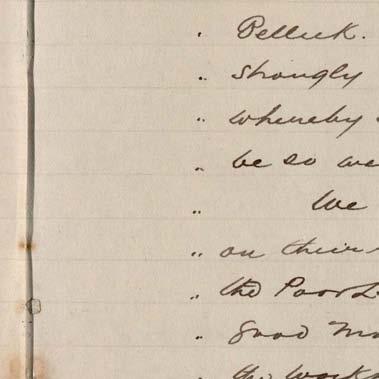 " Pelluck.
" strongly
" whereby
" be so we
" We
" on their
" the Poor L
" good Ma
" the Work